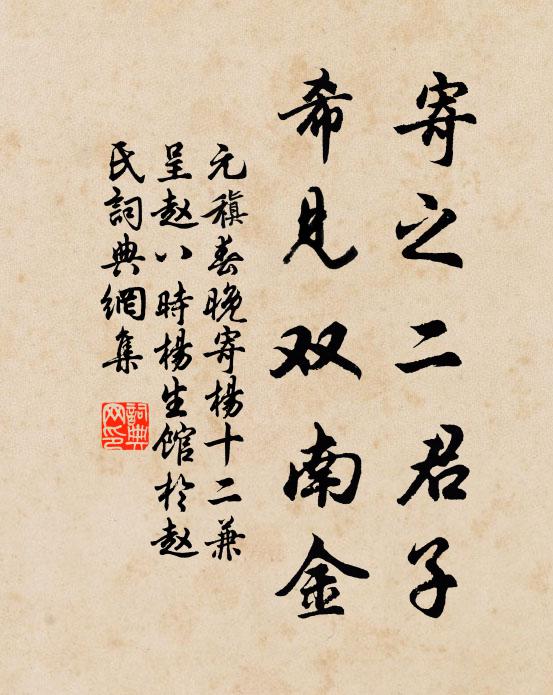 寄之二君子
希見双南金
元稹春晚寄楊十二兼
呈赵八時楊生馆於赵
氏詞典網集
詞典网印